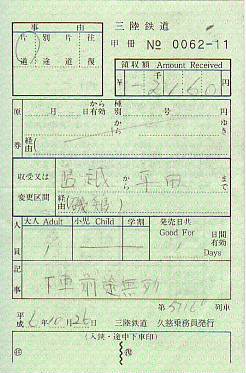 事由
片道 別途 片道 往復
三陸鉄道
甲冊 № 0062-11
領収額 Amount Received
¥ 千 2160 円
原券 月 日から有効 種別 号 円
経由( から ゆき
収受又は変更区間 島越 から 平田 まで
経由(磯鶏)
人員 大人 Adult 小児 Child 学割 発売日共 Good For 日間有効 Days
記事 下車前途無効
第 列車
平成 6年10月25日 三陸鉄道 久慈乗務員発行
(入鋏・途中下車印)